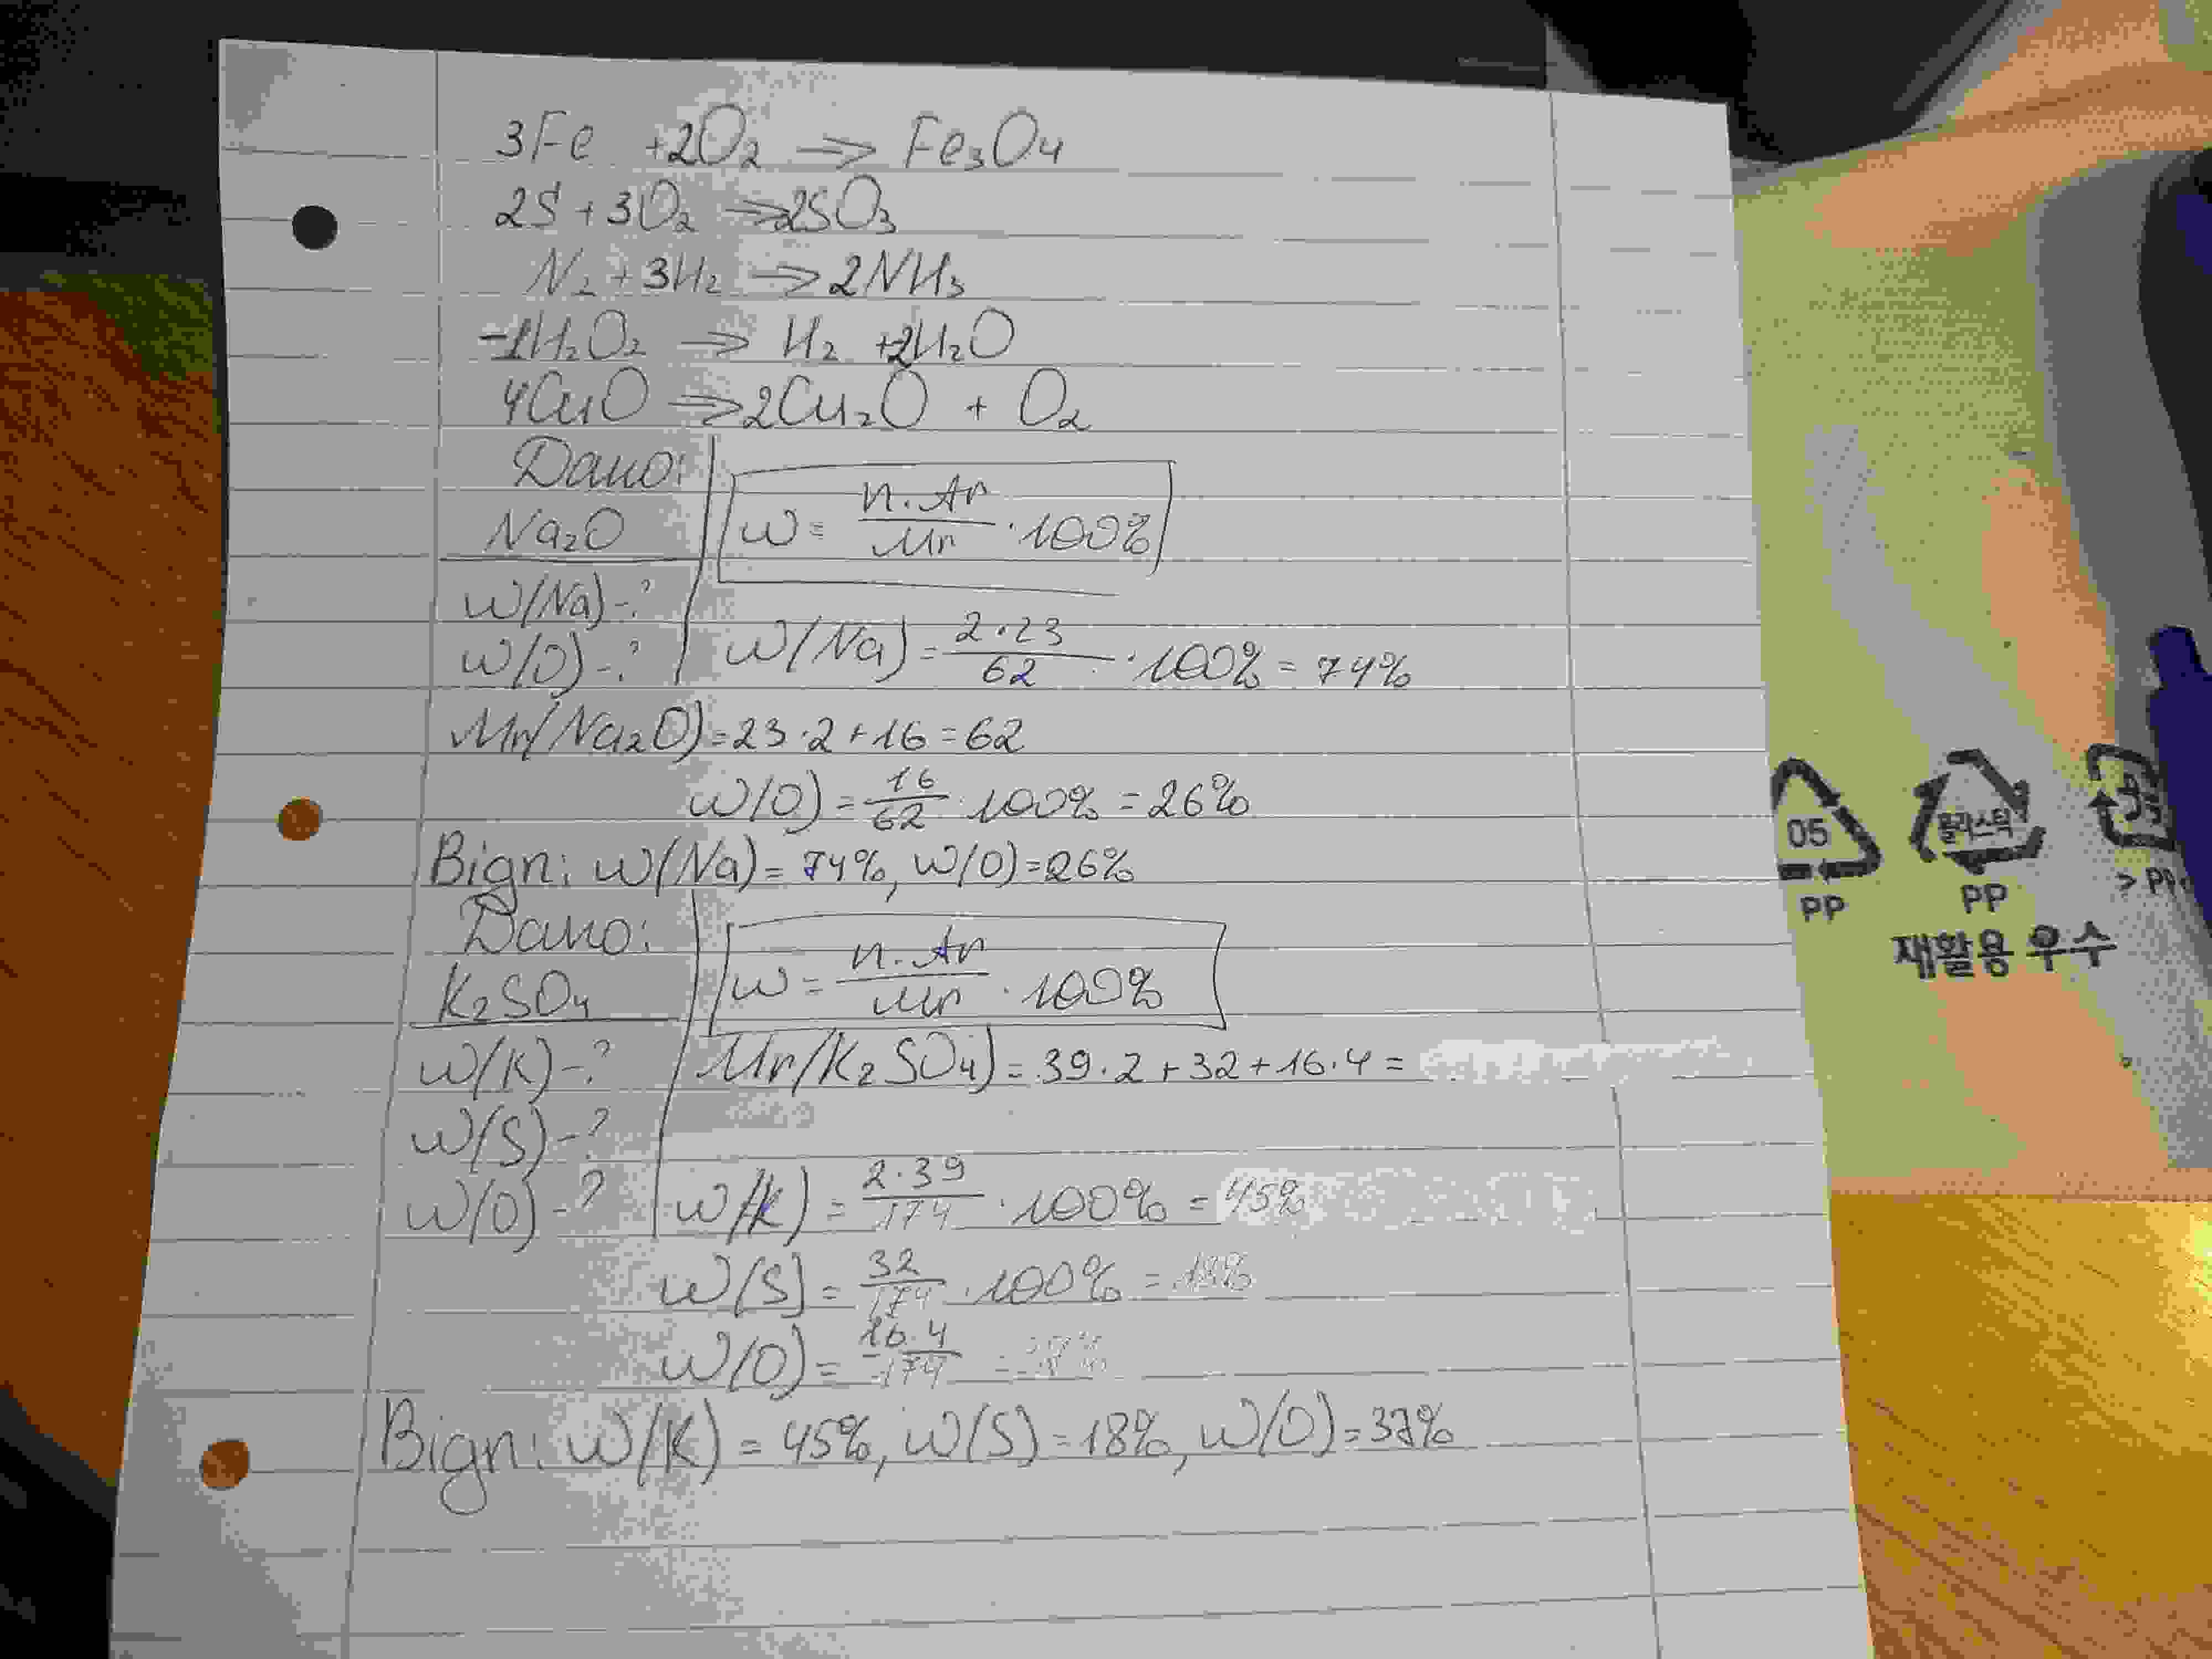 3Fe +2O₂ ⇒ Fe₃O₄
2S + 3O₂ ⇒ 2SO₃
N₂ + 3H₂ ⇒ 2NH₃
H₂O₂ ⇒ H₂ +2H₂O
4CuO ⇒ 2Cu₂O + O₂
Дано:
Na₂O
W(Na)-?
W(O)-?
w = n·Ar/Mr · 100%
W(Na) = 2·23/62 · 100% = 74%
Mr(Na₂O) = 23·2+16 = 62
W(O) = 16/62 · 100% = 26%
Відп: W(Na) = 74%, W(O) = 26%
Дано:
K₂SO₄
W(K)-?
W(S)-?
W(O)-?
w = n·Ar/Mr · 100%
Mr(K₂SO₄) = 39·2+32+16·4 =
W(K) = 2·39/174 · 100% = 45%
W(S) = 32/174 · 100% = 18%
W(O) = 16·4/174 =
Відп: W(K) = 45%, W(S) = 18%, W(O) = 37%
05
PP
플라스틱
PP
재활용 우수